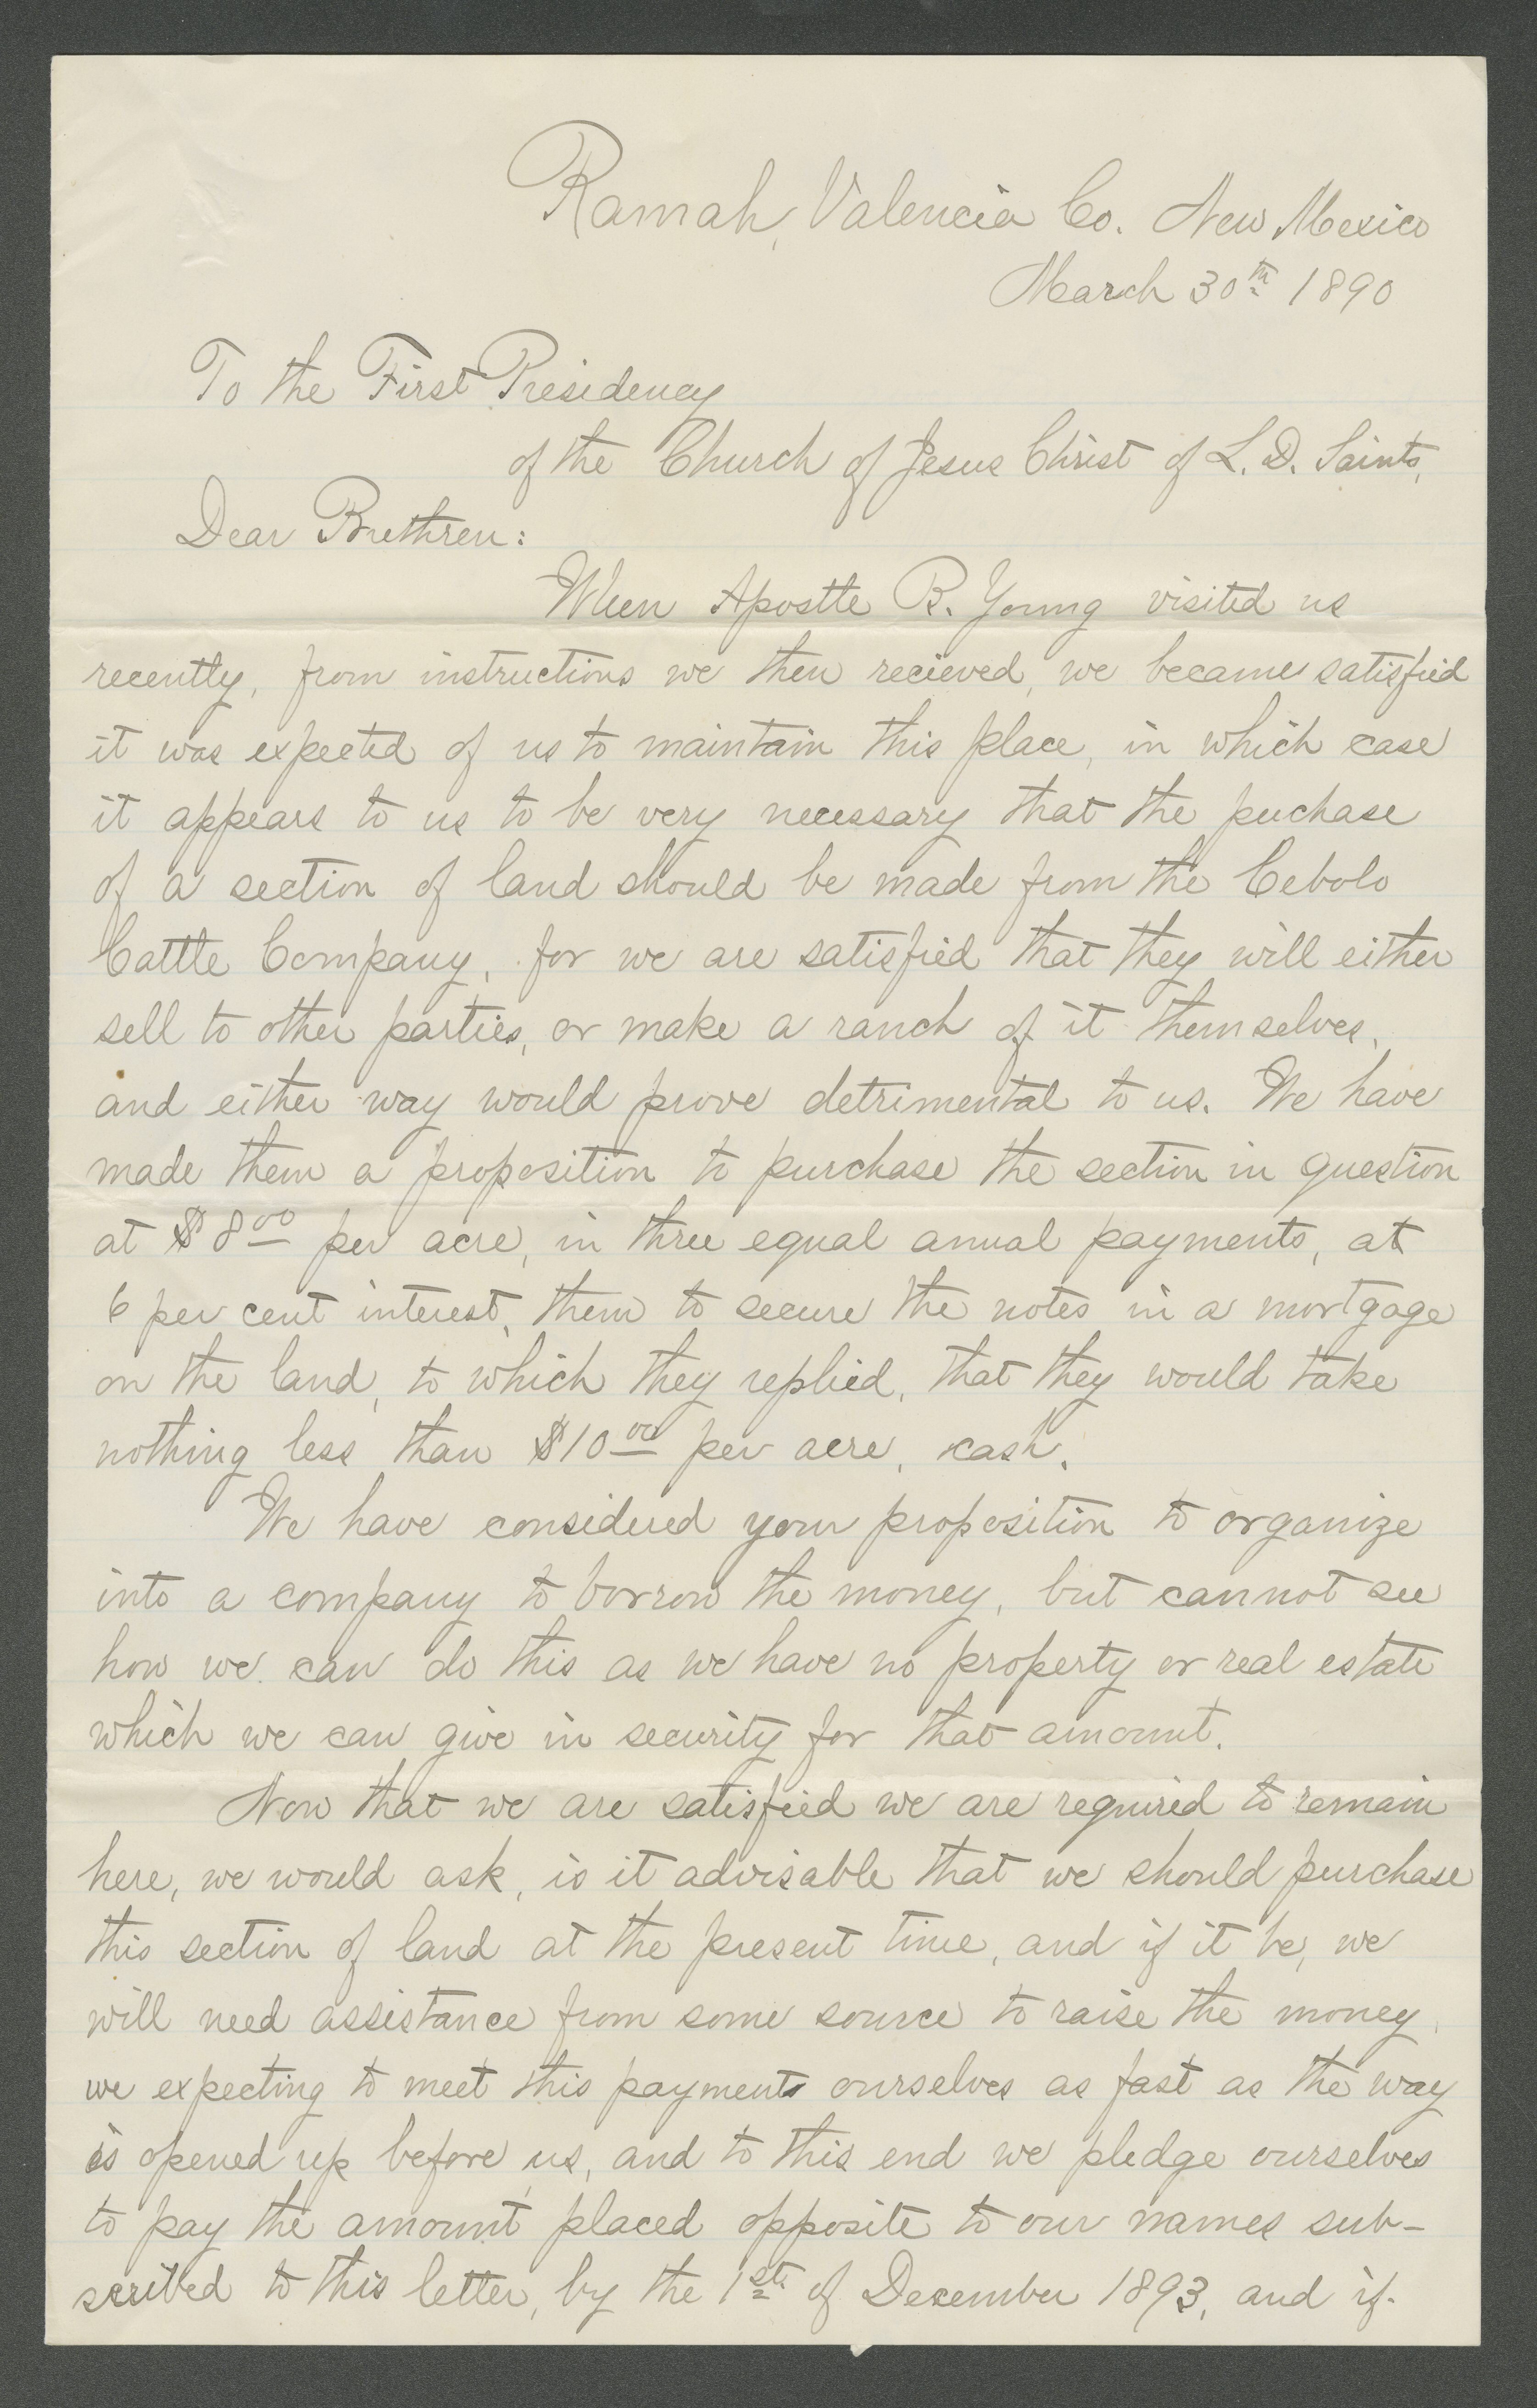 Ramah, Valencia Co. New Mexico
March 30th 1890
To the First Presidency
of the Church of Jesus Christ of L. D. Saints,
Dear Brethren:
When Apostle B. Young visited us
recently, from instructions we then recieved, we became satisfied
it was expected of us to maintain this place, in which case
it appears to us to be very necessary that the puchase
of a section of land should be made from the Cebolo
Cattle Company, for we are satisfied that they will either
sell to other parties, or make a ranch of it themselves,
and either way would prove detrimental to us. We have
made them a proposition to purchase the section in question
at $8.00 per acre, in three equal anual payments, at
6 per cent interest, them to secure the notes in a mortgage
on the land, to which they replied, that they would take
nothing less than $10.00 per acre, cash.
We have considered your proposition to organize
into a company to borrow the money, but cannot see
how we can do this as we have no property or real estate
which we can give in security for that amount.
Now that we are satisfied we are required to remain
here, we would ask, is it advisable that we should purchase
this section of land at the present time, and if it be, we
will need assistance from some source to raise the money,
we expecting to meet this payments ourselves as fast as the way
is opened up before us, and to this end we pledge ourselves
to pay the amount placed opposite to our names sub-
scribed to this letter, by the 1st. of December 1893, and if